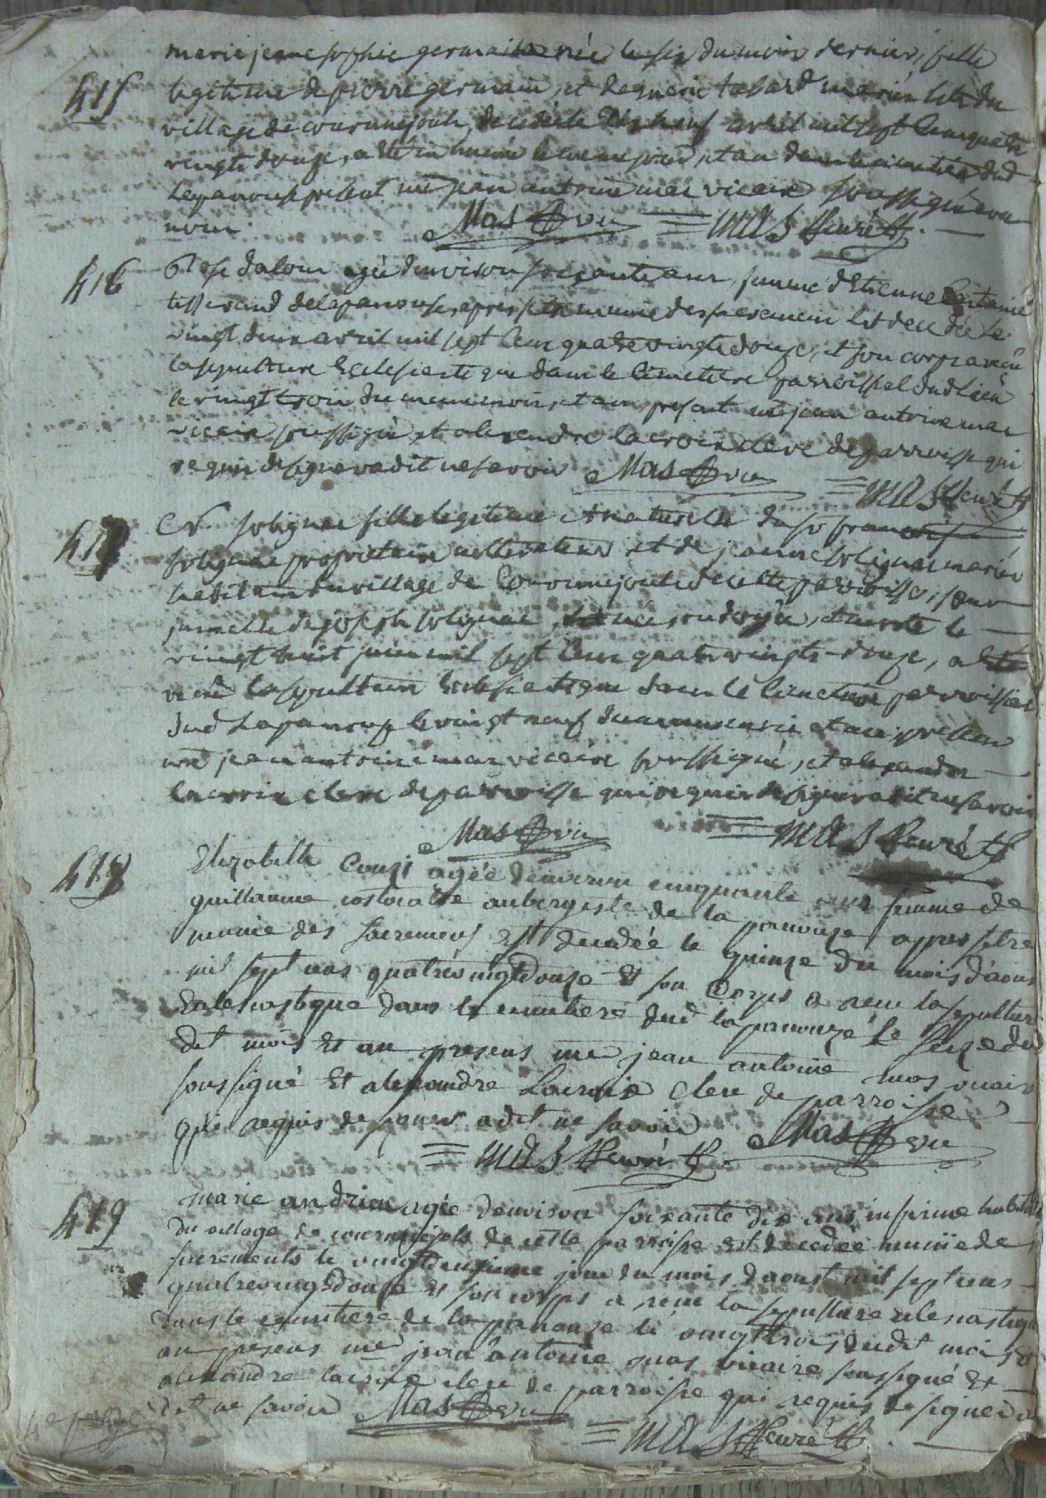 marie jeanne sophie germain née le six du mois dernier, fille
415
legitime de pierre germain, et de marie tabard mariés du
village de couronejouls, decedée dix neuf avril mil sept cens quatre
vingts douze, a été inhumée le meme jour, et au
Lapanouse present me jean antoine mas vicaire soussigné
Mas vic = MAS Curé
416
Rose dalour agée d'environ soixante ans, femme d'Etienne
tisserand de lapanouse, apres etre munie des sacremens est decedée le
vingt deux avril mil sept cens quatre vingts douze, et son corps a reçu
la sepulture Ecclesiastique dans le Cimetiere parroissial dud Lieu
le vingt trois du meme mois, et an, present me jean antoine mas
vicaire soussigné et alexandre lacroix clerc de parroisse qui
requis de signer a dit ne savoir Mas vic
= MAS Curé
417
N solignac fille legitime & naturelle du sr francois
solignac proprietaire cultivateur et de jeanne solignac mariés
habitans du village de Couronejouls de cette parroisse, soeur
jumelle de joseph solignac, et morte le
vingt huit juin mil sept Cens quatre vingts-douze, a
reçu la sepulture Ecclesiastique dans le Cimetiere parroissial
dud Lapanouse le vingt neuf du meme mois et an present
me jean antoine mas vicaire soussigné, et alexandre
lacroix clerc de parroisse qui requis de signer a dit ne savoir
Mas vic = MAS Curé
418
Elizabelle Couzi agée d'environ cinquante ans femme de
guillaume aubergiste de la panouze appres setre
munie des sacremens est decedée le quinze du mois d'aous
mil sept cens quatrevingtdouze Et son Corps a reçu la sepulture
Eclesiastique dans le cimetiere dud lapanouze Le seize du
dit mois Et an presens me jean antoine mas vicaire
soussigné Et alexandre Lacroix Clerc de parroisse
qui requis de signer a dit ne savoir Mas vic
= MAS Curé
419
marie andrieu agée d'environ soixante dix ans infirme
du village de couronejouls de cette parroisse est decedée munie de
sacrements le vingtdeuxieme jour du mois daoust mil sept cens
quatrevingtdouze Et son corps a reçu la sepulture eclesiastique
dans le cimetiere de la panouze le vingttrois dudit mois &
an presens me jean antoine mas vicaire soussigné Et
alexandre lacroix clerc de parroisse qui requis de signer a
dit ne savoir Mas vic
= MAS Curé